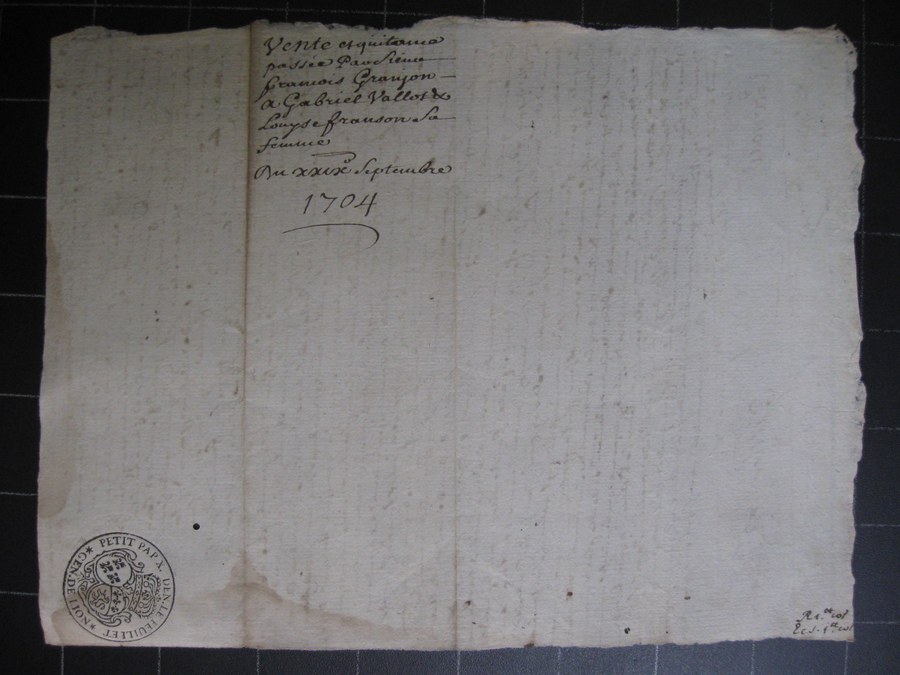 Vente et quitance
passee Par Sieur
francois Granjon
a Gabriel Vallot &
Louyse franson Sa
femme
Du xxix.e Septembre
1704
PETIT PAP. X. DEN. LE FEUILLET * GEN. DE *